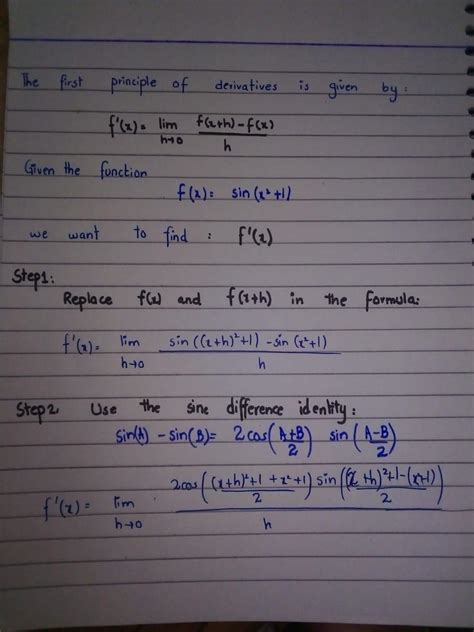 The first principle of derivatives is given by:
f'(x) = lim h→0 f(x+h) - f(x) / h
Given the function
f(x) = sin(x²+1)
we want to find : f'(x)
Step1:
Replace f(x) and f(x+h) in the formula:
f'(x) = lim h→0 sin((x+h)²+1) - sin(x²+1) / h
Step2 Use the sine difference identity:
sin(A) - sin(B) = 2cos(A+B / 2) sin(A-B / 2)
f'(x) = lim h→0 2cos((x+h)²+1 + x²+1) / 2) sin((x+h)²+1-(x²+1) / 2) / h